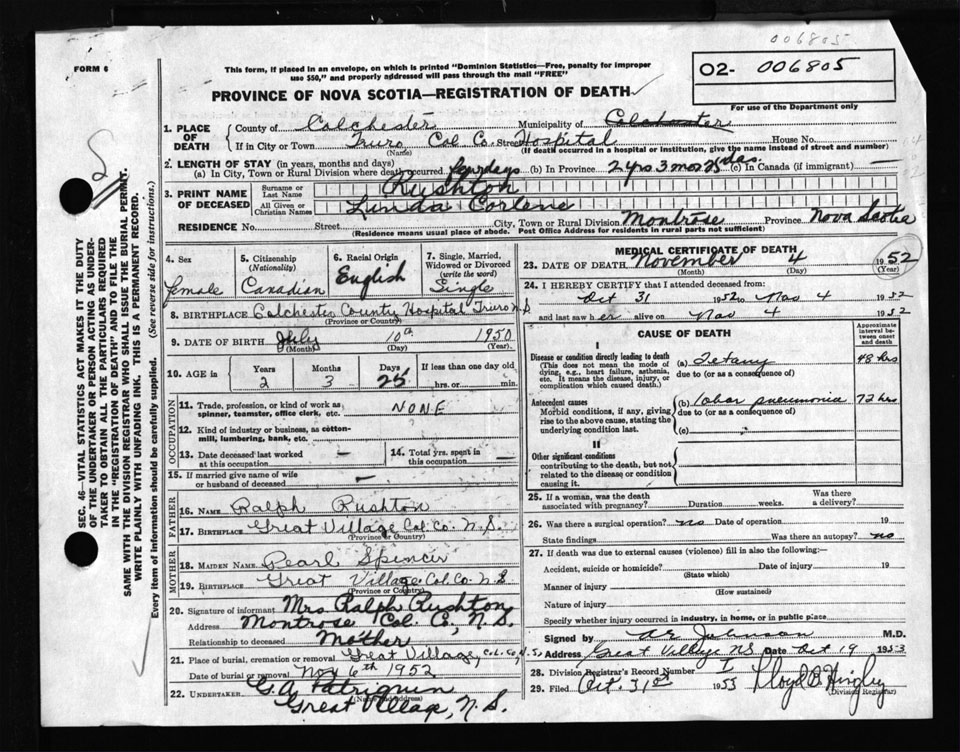 006805
FORM 6
This form, if placed in an envelope, on which is printed "Dominion Statistics—Free, penalty for improper
use $50," and properly addressed will pass through the mail "FREE"
O2- 006805
For use of the Department only
PROVINCE OF NOVA SCOTIA—REGISTRATION OF DEATH
1. PLACE OF DEATH
County of Colchester Municipality of Colchester
If in City or Town Truro Col. Co. Street Hospital House No.
(Name) (If death occurred in a hospital or institution, give the name instead of street and number)
2. LENGTH OF STAY (in years, months and days)
(a) In City, Town or Rural Division where death occurred few days (b) In Province 2 yrs 3 mos 25 das. (c) In Canada (if immigrant) —
3. PRINT NAME OF DECEASED
Surname or Last Name Rushton
All Given or Christian Names Linda Corlene
RESIDENCE No. Street City, Town or Rural Division Montrose Province Nova Scotia
(Residence means usual place of abode. Post Office Address for residents in rural parts not sufficient)
4. Sex female
5. Citizenship (Nationality) Canadian
6. Racial Origin English
7. Single, Married, Widowed or Divorced (write the word) Single
8. BIRTHPLACE Colchester County Hospital Truro N.S
(Province or Country)
9. DATE OF BIRTH July 10th 1950
(Month) (Day) (Year)
10. AGE in Years 2 Months 3 Days 25 If less than one day old
hrs. or min.
OCCUPATION
11. Trade, profession, or kind of work as
spinner, teamster, office clerk, etc. NONE
12. Kind of industry or business, as cotton-
mill, lumbering, bank, etc.
13. Date deceased last worked
at this occupation —
14. Total yrs. spent in
this occupation —
15. If married give name of wife
or husband of deceased —
FATHER
16. NAME Ralph Rushton
17. BIRTHPLACE Great Village Col. Co. N.S.
(Province or Country)
MOTHER
18. MAIDEN NAME Pearl Spencer
19. BIRTHPLACE Great Village Col. Co. N.S
(Province or Country)
20. Signature of informant Mrs Ralph Rushton
Address Montrose Col. Co., N.S.
Relationship to deceased Mother
21. Place of burial, cremation or removal Great Village, Col. Co, N.S.
Date of burial or removal Nov 6th 1952
22. UNDERTAKER G.A. Patriquin
(Name and Address)
Great Village, N.S.
MEDICAL CERTIFICATE OF DEATH
23. DATE OF DEATH November 4 1952
(Month) (Day) (Year)
24. I HEREBY CERTIFY that I attended deceased from:
Oct 31 1952 to Nov 4 1952
and last saw her alive on Nov 4 1952
CAUSE OF DEATH
Approximate interval between onset and death
I
Disease or condition directly leading to death
(This does not mean the mode of
dying, e.g., heart failure, asthenia,
etc. It means the disease, injury, or
complication which caused death.)
(a) Tetany 48 hrs
due to (or as a consequence of)
Antecedent causes
Morbid conditions, if any, giving
rise to the above cause, stating the
underlying condition last.
(b) lobar pneumonia 72 hrs
due to (or as a consequence of)
(c)
II
Other significant conditions
contributing to the death, but not
related to the disease or condition
causing it.
25. If a woman, was the death
associated with pregnancy? Duration weeks. Was there
a delivery?
26. Was there a surgical operation? no Date of operation 19
State findings Was there an autopsy? no
27. If death was due to external causes (violence) fill in also the following:—
Accident, suicide or homicide? Date of injury 19
(State which)
Manner of injury
(How sustained)
Nature of injury
Specify whether injury occurred in industry, in home, or in public place
Signed by A E Johnson M.D.
Address Great Village NS Date Oct 19 1953
28. Division Registrar's Record Number 1
29. Filed Oct. 31st 1953 Lloyd B Hingley
(Division Registrar)
SEC. 46—VITAL STATISTICS ACT MAKES IT THE DUTY
OF THE UNDERTAKER OR PERSON ACTING AS UNDER-
TAKER TO OBTAIN ALL THE PARTICULARS REQUIRED
IN THE "REGISTRATION OF DEATH" AND TO FILE THE
SAME WITH THE DIVISION REGISTRAR WHO SHALL ISSUE THE BURIAL PERMIT.
WRITE PLAINLY WITH UNFADING INK. THIS IS A PERMANENT RECORD.
Every item of information should be carefully supplied. (See reverse side for instructions.)